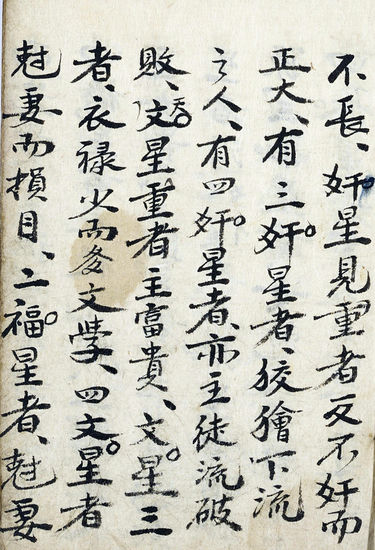 不長、奸星見重者反不奸而
正大、有三奸星者、狡獪下流
之人、有四奸星者、亦主徒流破
敗、文星重者主富貴、文星三
者、衣祿少而多文学、四文星者
尅妻而損目、二福星者、尅妻